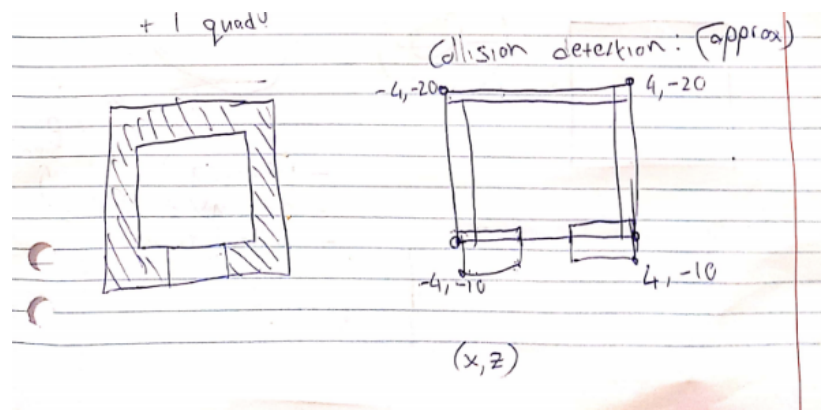 + 1 quad
Collision detection: (approx)
-4,-20
4,-20
-4,-10
4,-10
(x,z)